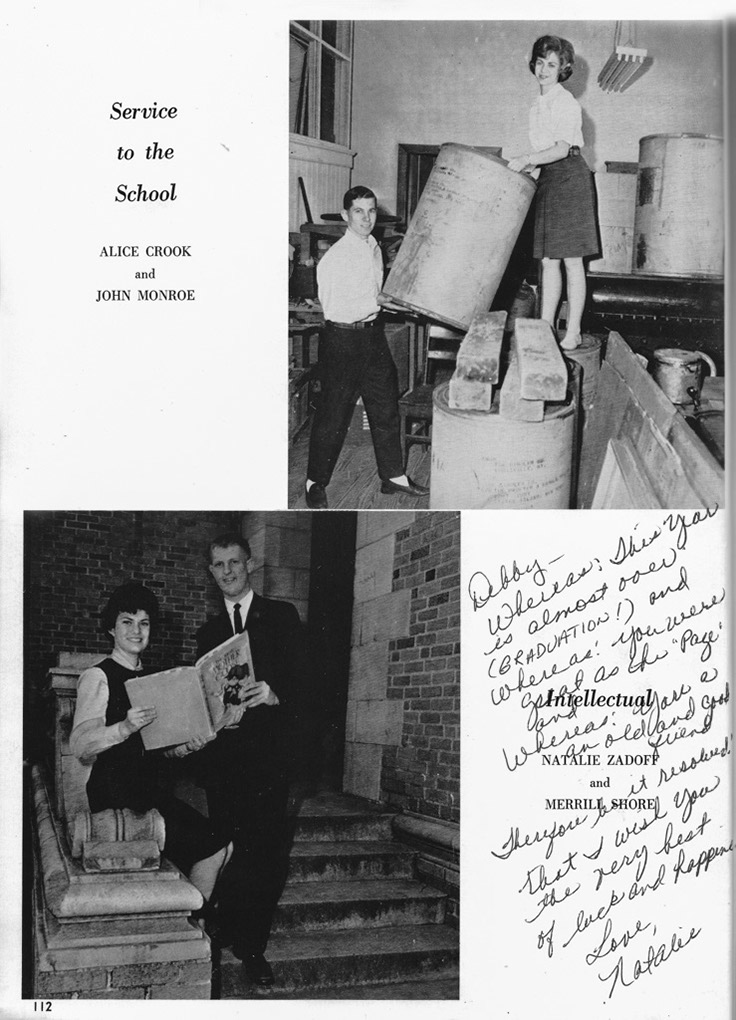 Service
to the
School
ALICE CROOK
and
JOHN MONROE
Debby—
Whereas: This Year
is almost over
(GRADUATION!) and
Whereas: you were
great as the "Page"
and
Whereas: You're a
an old and good
friend
Therefore be it resolved!
that I wish you
the very best
of luck and happine
Love,
Natalie
Intellectual
NATALIE ZADOFF
and
MERRILL SHORE
112